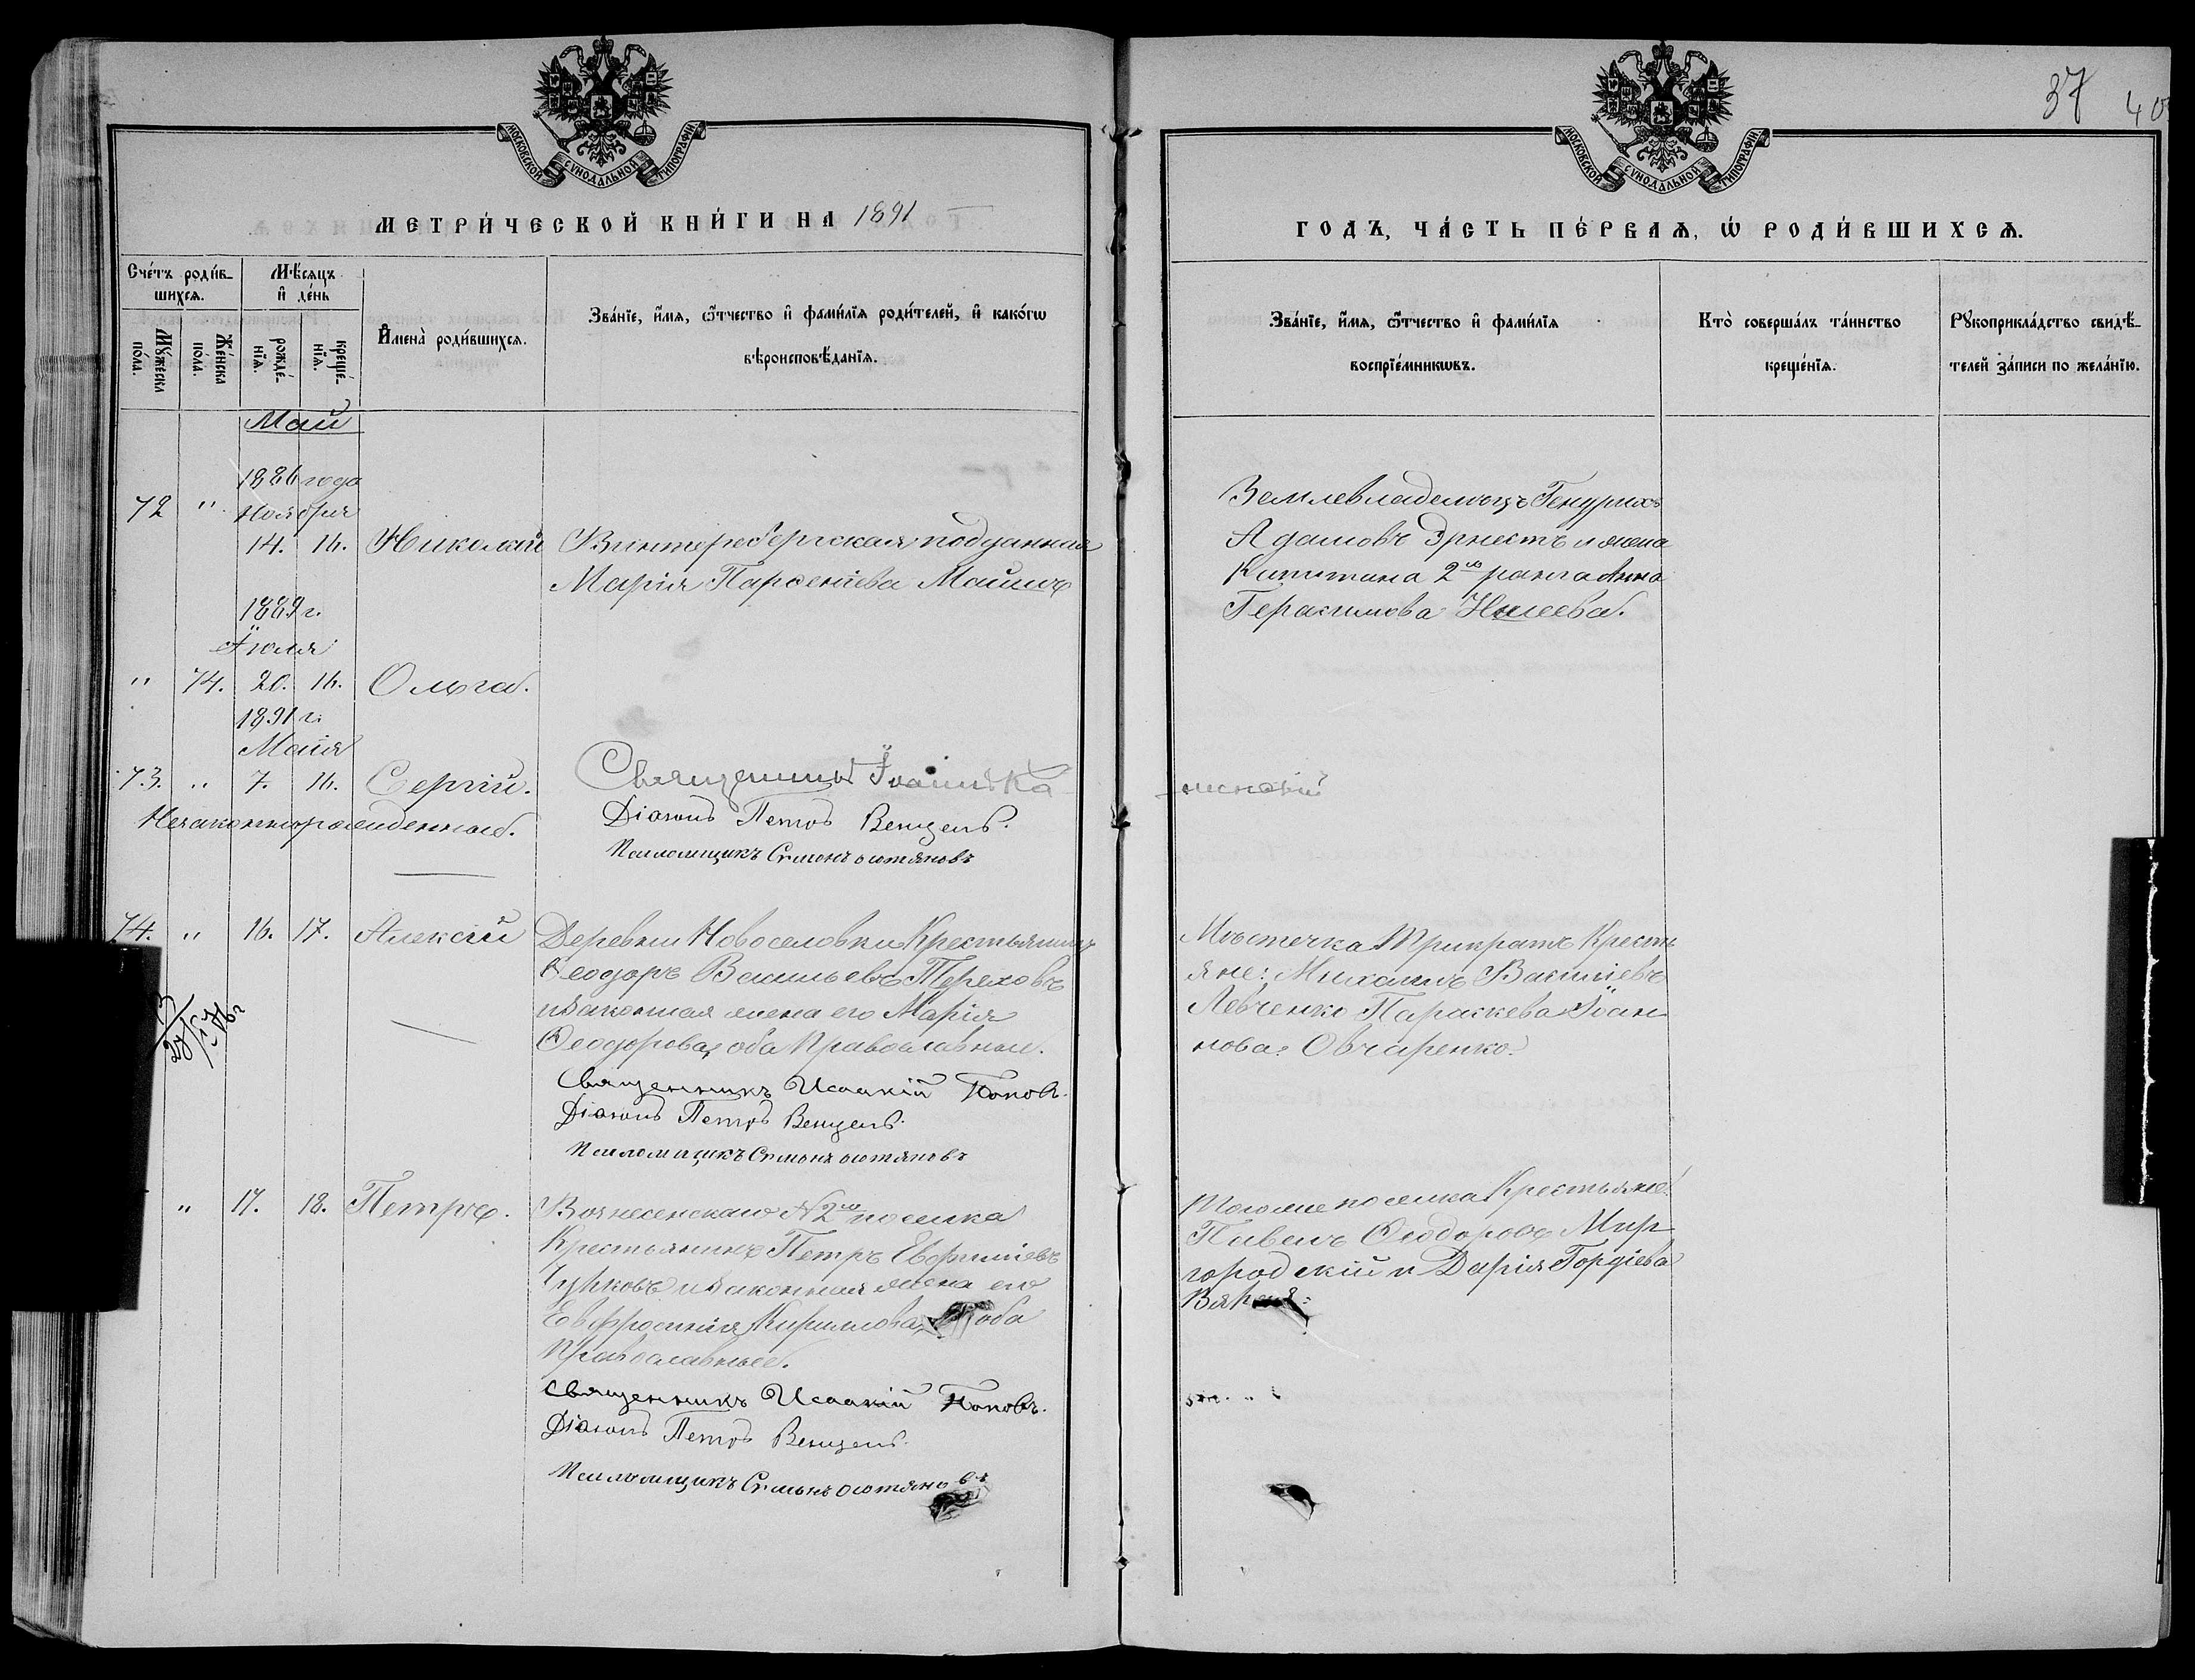 37 40
МОСКОВСКОЙ СѴНОДАЛЬНОЙ ТИПОГРАФІИ
МОСКОВСКОЙ СѴНОДАЛЬНОЙ ТИПОГРАФІИ
МЕТРИ́ЧЕСКОЙ КНИ́ГИ НА 1891
ГОДЪ, ЧА́СТЬ ПЕ́РВАѦ, Ѡ҆ РОДИ́ВШИХСѦ.
Сче́тъ роди́в-
шихсѧ.
Мꙋ́жеска по́ла.
Же́нска по́ла.
Мѣ́сѧцъ
и҆ де́нь
рожде́-нїѧ.
креще́-нїѧ.
И҆мена̀ роди́вшихсѧ.
Зва́нїе, и҆́мѧ, ѻ҆́тчество и҆ фами́лїѧ роди́телей, и҆ како́гѡ
вѣроисповѣ́данїѧ.
Зва́нїе, и҆́мѧ, ѻ҆́тчество и҆ фами́лїѧ
воспрїе́мникѡвъ.
Кто̀ соверша́лъ та́инство
креще́нїѧ.
Рꙋкоприкла́дство свидѣ́-
телей за́писи по жела́нїю.
Май
1886 года
Ноября
72 " 14. 16. Николай
подданная
Марія Парѳеніева
Землевладелецъ Генрихъ
Адамовъ Эрнестъ и жена
Капитана 2го ранга Анна
Герасимова
1889 г.
Іюля
" 74. 20. 16. Ольга.
1891 г.
Маія
73. " 7. 16. Сергій.
Незаконнорожденные.
Священникъ
Діаконъ Петръ Венцель.
Псаломщикъ Симонъ
74. " 16. 17. Алексій
Деревни Новоселовки Крестьянинъ
Ѳеодоръ Васильевъ Тереховъ
и законная жена его Марія
Ѳеодорова, оба Православные.
Священникъ Исаакій Поповъ.
Діаконъ Петръ Венцель.
Псаломщикъ Симонъ
Мѣстечка Трикратъ Кресть
яне: Михаилъ Васильевъ
Левченко Параскева Іоан
нова Овчаренко.
" 17. 18. Петръ.
Вознесенскаго № 2го поселка
Крестьянинъ Петръ Евѳиміевъ
Чурковъ и законная жена его
Евфросинія Кириллова, оба
Православные.
Священникъ Исаакій Поповъ.
Діаконъ Петръ Венцель.
Псаломщикъ Симонъ
Тогоже поселка Крестьяне:
Павелъ Ѳеодоровъ Мир
городскій и Дарія Гордіева